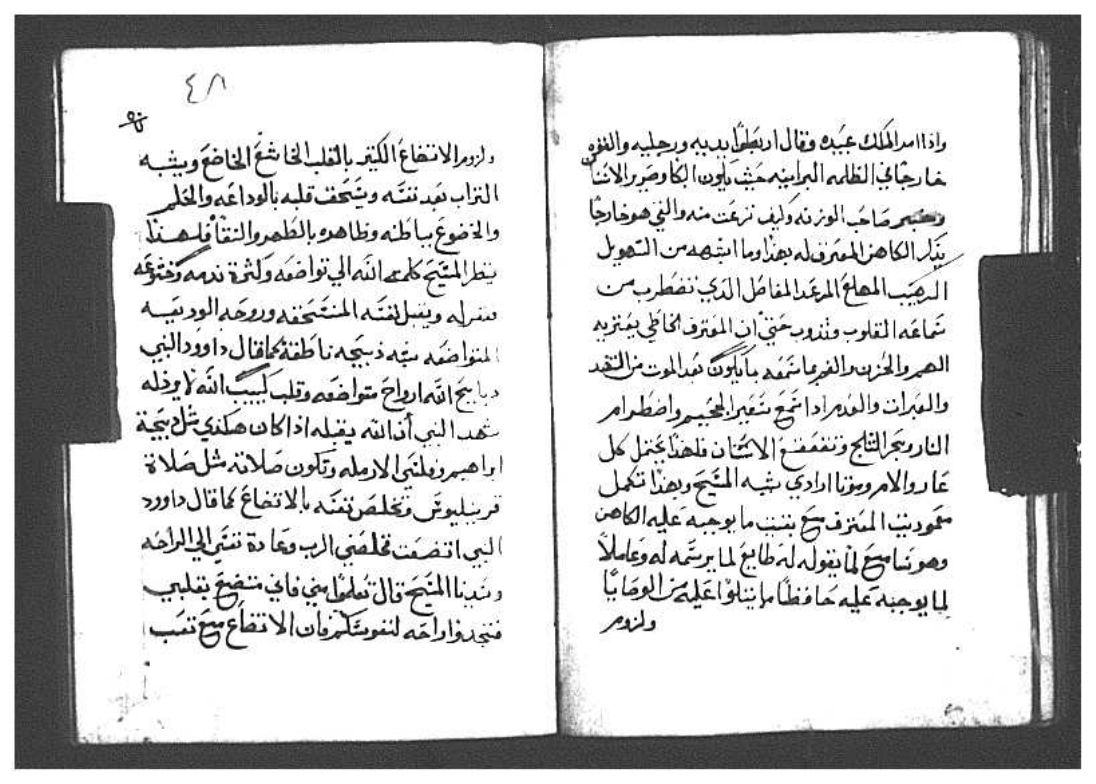 واذا امر الملك عبيده وقال اربطوا يديه ورجليه والقوه
خارجا في الظلمه البرانيه حيث يكون البكا وصرير الاسنان
صاحب الوزنه وكيف نزعت منه والقي هو خارجا
يذكر الكاهن المعترف له بهذا وما اشبهه من التهويل
الرهيب المهلع المرعد المفاصل الذي تضطرب من
سماعه القلوب وتذوب حتي ان المعترف الخاطي يعتريه
الهم والحزن والغم ما سمعه ما يكون بعد الموت من التنهد
والعبرات والندم اذا سمع بتسعير الجحيم واضطرام
النار وبحر الثلج وتقعقع الاسنان فلهذا يحتمل كل
عار والام وموتا ارادي شبه المسيح وبهذا تكمل
معموديت المعترف مع بتبت ما يوجبه عليه الكاهن
وهو سامع لما يقوله له طايع لما يرسمه له وعاملا
لما يوجبه عليه حافظا ما يتلوا عليه من الوصايا
ولزوم
٤٨
ولزوم الاتضاع الكثير بالقلب الخاشع الخاضع ويشبه
التراب بعد نفسه ويسحق قلبه بالوداعه والحلم
والخضوع بباطنه وظاهره بالطهر والنقا فلهذا
ينظر المسيح كلمة الله الي تواضعه وكثرة ندمه وخشوعه
فيغفر له ويقبل نفسه المنسحقه وروحه الوديعه
المتواضعه شبه ذبيحه ناطقة كما قال داوود النبي
دبايح الله ارواح متواضعه وقلب كييب الله لا يرذله
شهد النبي أن الله يقبله اذا كان هكذي مثل ذبيحة
ابراهيم وفلسي الارمله وتكون صلاته مثل صلاة
قرنيليوس وتخلص نفسه بالاتضاع كما قال داوود
النبي اتضعت فخلصني الرب وعادة نفسي الي الراحه
وسيدنا المسيح قال تعلموا مني فاني متضع بقلبي
فتجدوا راحه لنفوسكم فان الاتضاع مع تعب